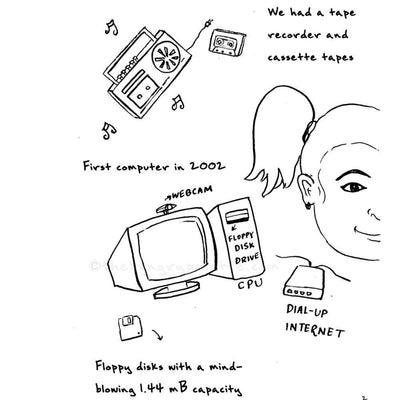 We had a tape
recorder and
cassette tapes
First computer in 2002
WEBCAM
FLOPPY
DISK
DRIVE
CPU
DIAL-UP
INTERNET
Floppy disks with a mind-
blowing 1.44 mB capacity